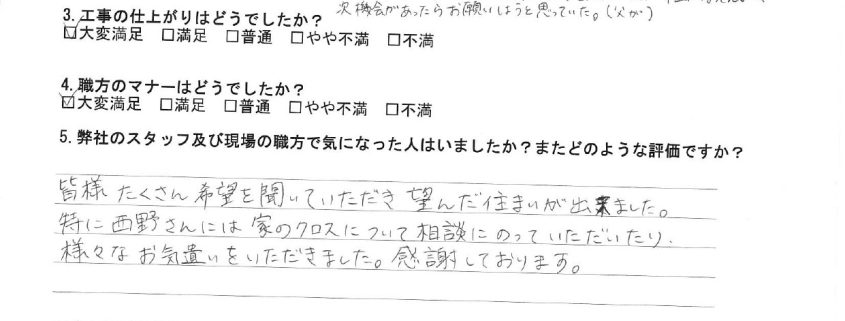 3.工事の仕上がりはどうでしたか?
次機会があったらお願いしようと思っていた。(父が)
☑大変満足 □満足 □普通 □やや不満 □不満
4.職方のマナーはどうでしたか?
☑大変満足 □満足 □普通 □やや不満 □不満
5.弊社のスタッフ及び現場の職方で気になった人はいましたか?またどのような評価ですか?
皆様 たくさん 希望を聞いていただき 望んだ住まいが出来ました。
特に 西野さんには 家のクロスについて相談にのっていただいたり、
様々な お気遣いをいただきました。感謝しております。